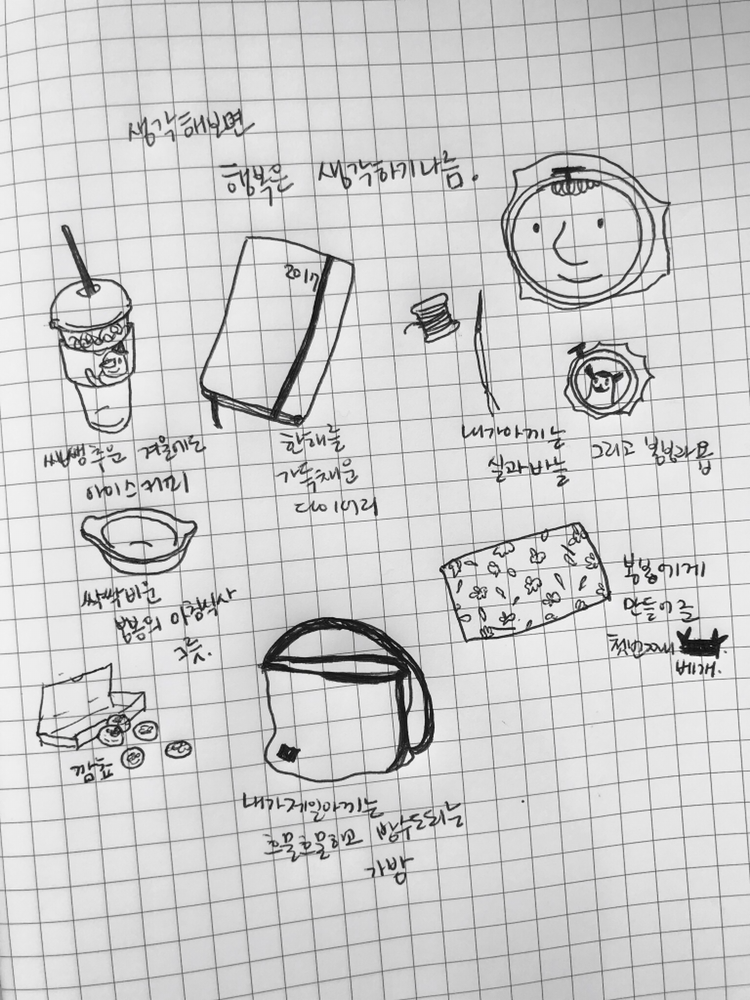 생각해보면
행복은 생각하기나름.
2017
쌩쌩추운 겨울에도
아이스커피
한해를
가득채운
다이어리
내가아끼는
실과바늘
그리고 봄봄라봄
싹싹비운
봄봄의 아침식사
그릇.
깜쮸
봄봄이에게
만들어줄
첫번째
베개.
내가제일아끼는
흐물흐물하고 방수도되는
가방